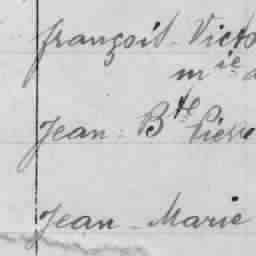 françois Victo
m ie
Jean Bte Pierre
Jean - Marie